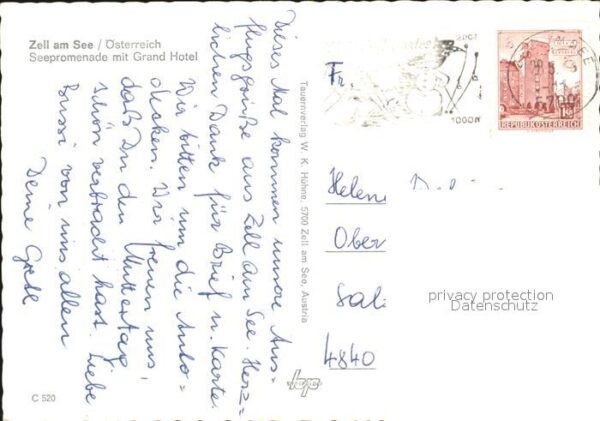 Zell am See / Österreich
Seepromenade mit Grand Hotel
Dieses Mal kommen unsere Aus=
flugsgrüße aus Zell am See. Herz=
lichen Dank für Brief u. Karte.
Wir bitten um die Auto=
decken. Wir freuen uns,
daß Du den Muttertag
schön verbracht hast. Liebe
Bussi von uns allen
Deine Grete
Tauernverlag W. K. Hühne, 5700 Zell am See, Austria
1000 m
5700
REPUBLIK ÖSTERREICH
Fr.
Helene
Ober
Sal
4840
privacy protection
Datenschutz
C 520